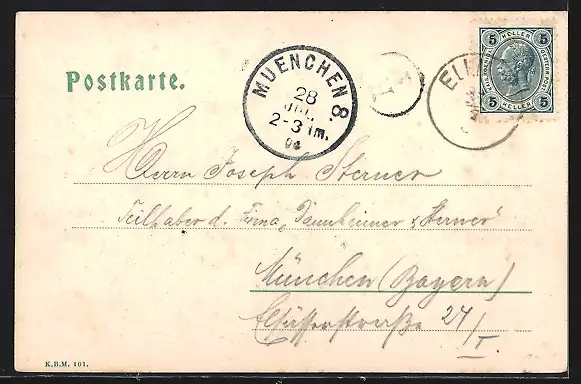 Postkarte.
MUENCHEN 8.
28
JUL.
2-3 Nm.
5 HELLER 5
5 HELLER 5
Herrn Joseph Sterner
Teilhaber d. Firma „Dannheimer & Sterner"
München (Bayern)
24/I.
K.B.M. 101.